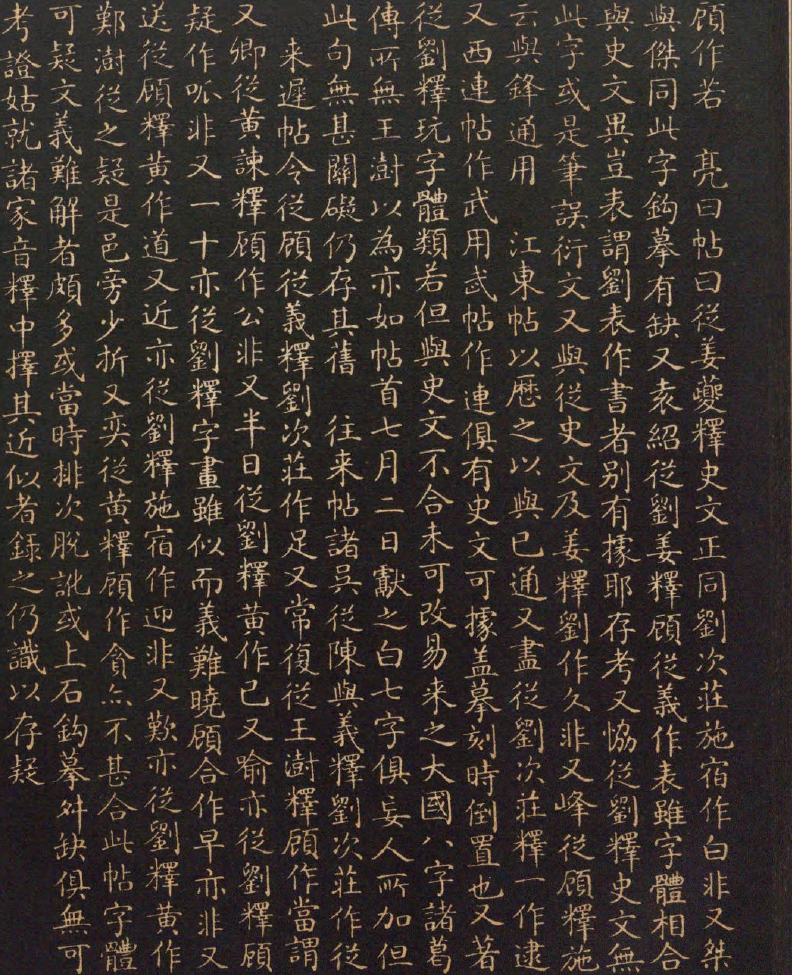 顧作若　亮曰帖曰從姜夔釋史文正同劉次莊施宿作白非又桀
與傑同此字鈎摹有缺又袁紹從劉姜釋顧從義作表雖字體相合
與史文異豈表謂劉表作書者别有據耶存考又恊從劉釋史文無
此字或是筆誤衍文又與從史文及姜釋劉作久非又峰從顧釋施
云與鋒通用　江東帖以歷之以與已通又盡從劉次莊釋一作逮
又西連帖作武用武帖作連俱有史文可據盖摹刻時倒置也又著
從劉釋玩字體類若但與史文不合未可改易来之大國八字諸葛
傳所無王澍以為亦如帖首七月二日獻之白七字俱妄人所加但
此句無甚關礙仍存其舊　往来帖諸吳從陳與義釋劉次莊作從
来遲帖令從顧從義釋劉次莊作足又常復從王澍釋顧作當謂
又卿從黄諫釋顧作公非又半日從劉釋黄作已又喻亦從劉釋顧
疑作呱非又一十亦從劉釋字畫雖似而義難曉顧合作早亦非又
送從顧釋黄作道又近亦從劉釋施宿作迎非又歎亦從劉釋黄作
鄭澍從之疑是邑旁少折又奕從黄釋顧作貪亦不甚合此帖字體
可疑文義難解者頗多或當時排次脱訛或上石鈎摹舛缺俱無可
考證姑就諸家音釋中擇其近似者録之仍識以存疑